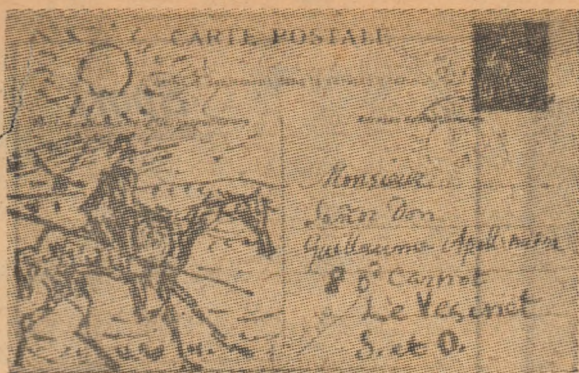 CARTE POSTALE
Monsieur
Señor Don
Guillaume Apollinaire
8 Bd Carnot
Le Vesinet
S. et O.